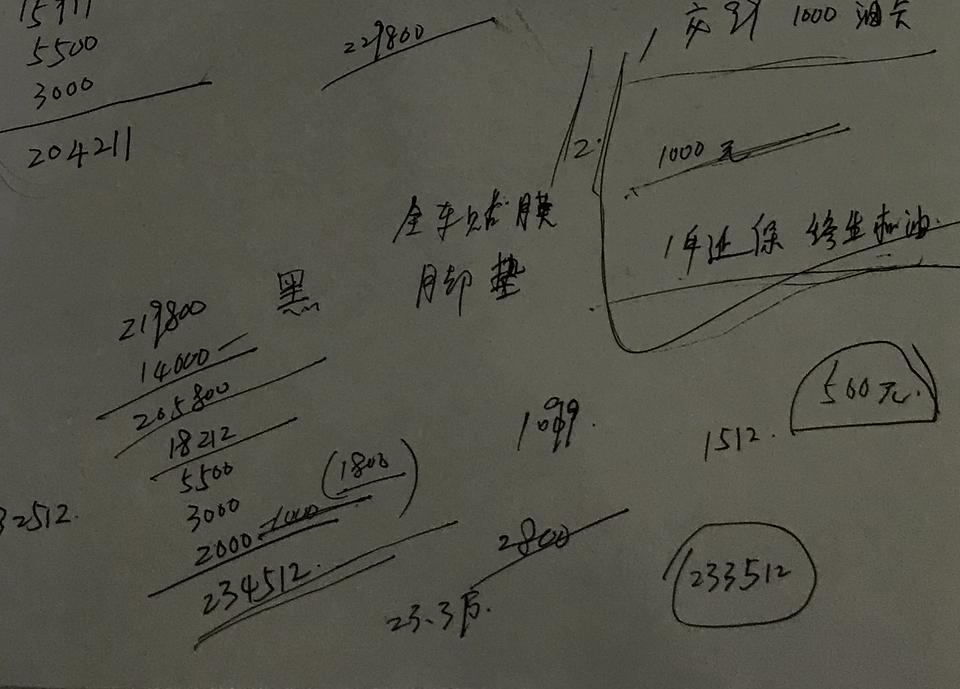 15911
5500
3000
204211
229800
1 交到 1000 油卡
2.
1000 元
1年还保 终生机油
全车贴膜
脚垫
黑
219800
14000 —
205800
18212
5500
3000
2000 1000 (1800)
234512.
32512.
1099.
2800
23.3万.
1512.
500元.
233512